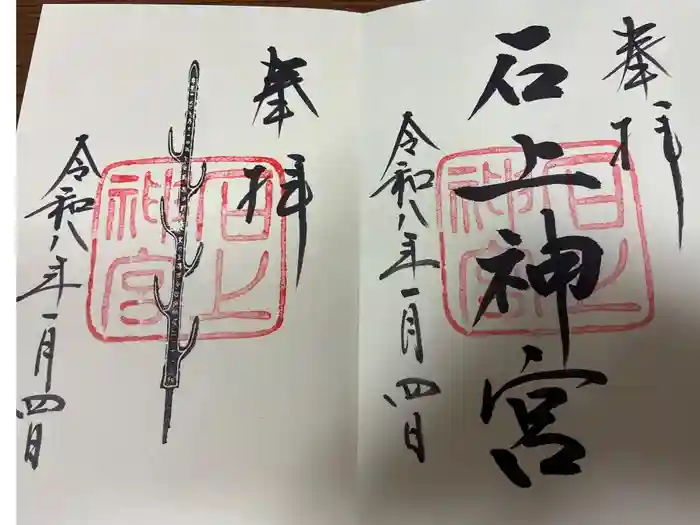 奉拝
石上神宮
令和八年一月四日
石上
神宮
奉拝
令和八年一月四日
石上
神宮